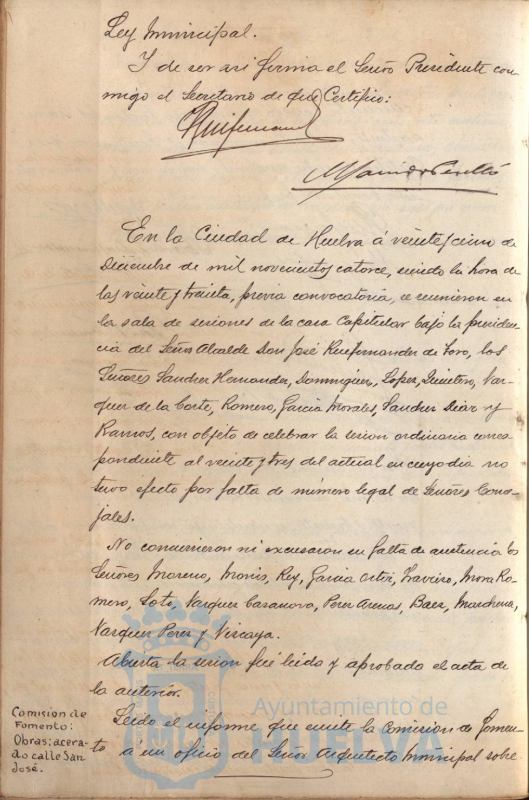 Ley Municipal.
Y de ser asi firma el Señor Presidente con
migo el Secretario de que Certifico:
En la Ciudad de Huelva á veinte y cinco de
Diciembre de mil novecientos catorce, siendo la hora de
las veinte y treinta, previa convocatoria, se reunieron en
la sala de sesiones de la casa Capitular bajo la presiden
cia del Señor Alcalde Don José Ruifernandez de Toro, los
Señores Sanchez Hernandez, Dominguez, Lopez, Quintero, Vaz
quez de la Corte, Romero, Garcia Morales, Sanchez Diaz y
Ramos, con objeto de celebrar la sesion ordinaria corres
pondiente al veinte y tres del actual en cuyo dia no
tuvo efecto por falta de número legal de Señores Conce
jales.
No concurrieron ni excusaron su falta de asistencia los
Señores Moreno, Monis, Rey, Garcia Ortiz, Mora Ro
mero, Soto, Vazquez Casanova, Perez Arenas, Baez, Marchena,
Vazquez Perez y Vizcaya.
Abierta la sesion fué leida y aprobada el acta de
la anterior.
Comision de
Fomento:
Obras: acera-
do calle San
José.
Leido el informe que emite la Comision de Fomen-
to a un oficio del Señor Arquitecto Municipal sobre
Ayuntamiento de
HUELVA